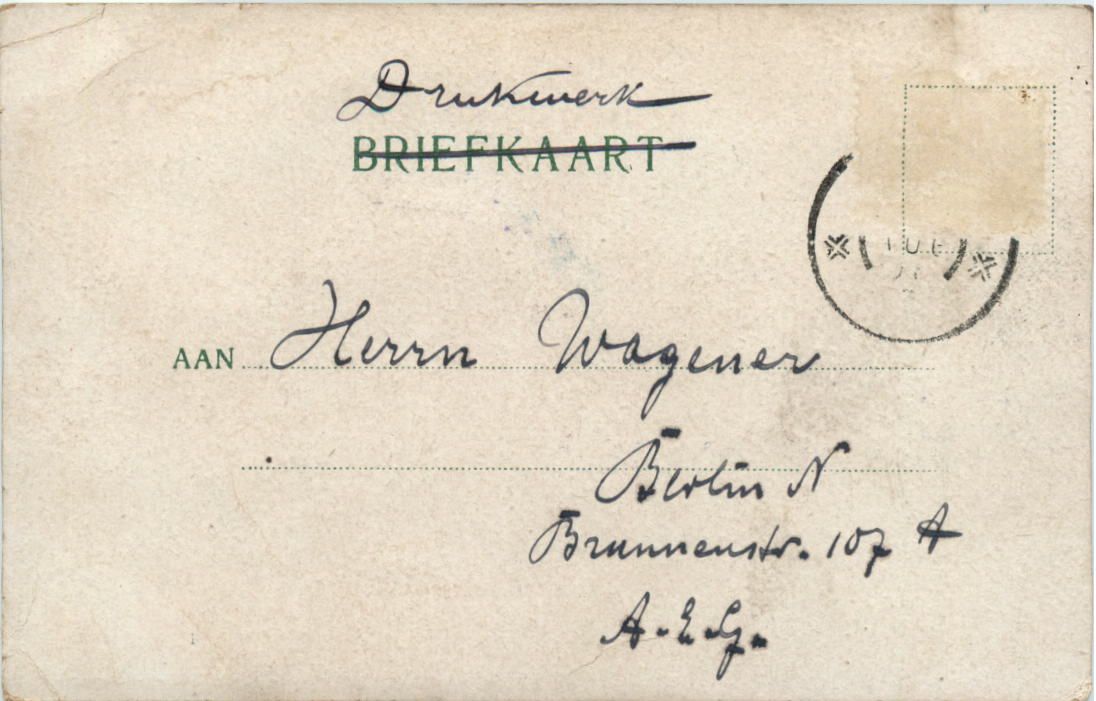 Drukwerk
BRIEFKAART
AAN Herrn Wagener
Berlin N
Brunnenstr. 107 A
A.E.G.